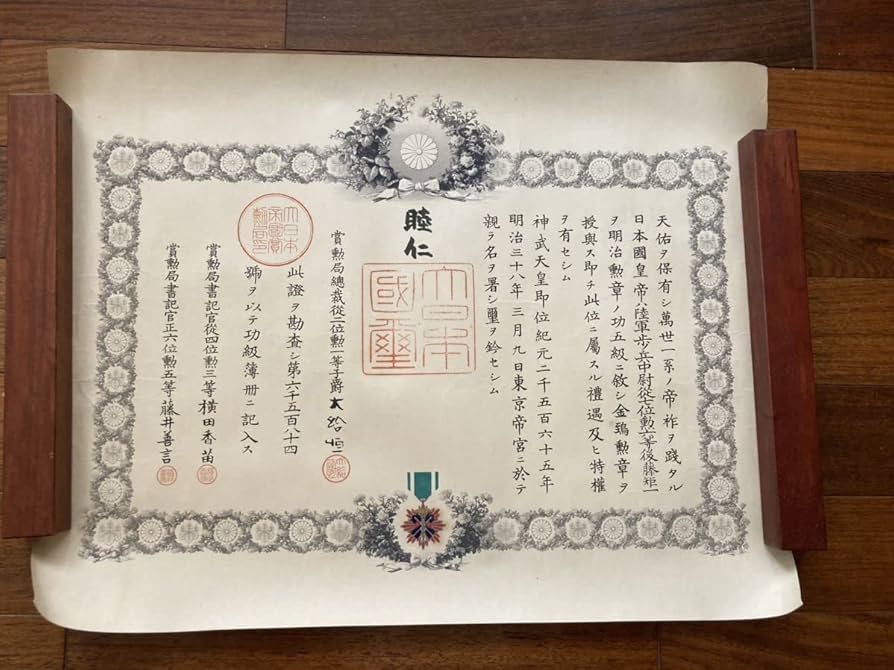 天佑ヲ保有シ萬世一系ノ帝祚ヲ踐タル
日本國皇帝ハ陸軍歩兵中尉從七位勲六等後藤矩一
ヲ明治勲章ノ功五級ニ敘シ金鵄勲章ヲ
授與ス即チ此位ニ屬スル禮遇及ヒ特權
ヲ有セシム
神武天皇即位紀元二千五百六十五年
明治三十八年三月九日東京帝宮ニ於テ
親ラ名ヲ署シ璽ヲ鈐セシム
睦仁
大日本國璽
賞勲局總裁從二位勲一等子爵大給恒
此證ヲ勘査シ第六千五百八十四
號ヲ以テ功級簿册ニ記入ス
大日本帝國賞勲局印
賞勲局書記官從四位勲三等横田香苗
賞勲局書記官正六位勲五等藤井善言